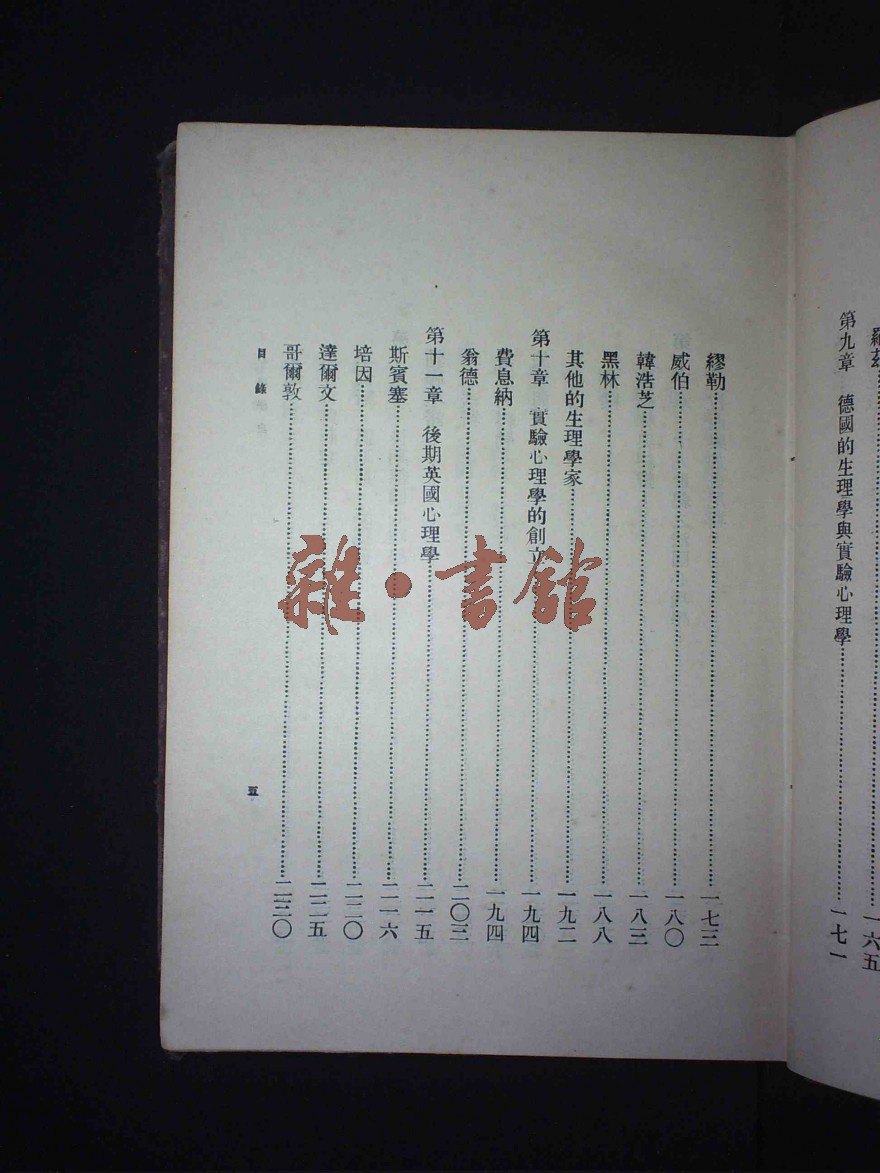 羅茲……一六五
第九章　德國的生理學與實驗心理學……一七一
繆勒……一七三
威伯……一八〇
韓浩芝……一八三
黑林……一八八
其他的生理學家……一九二
第十章　實驗心理學的創立……一九四
費息納……一九四
翁德……二〇三
第十一章　後期英國心理學……二一五
斯賓塞……二一六
培因……二二〇
達爾文……二二五
哥爾敦……二三〇
目錄
五
雜·書館